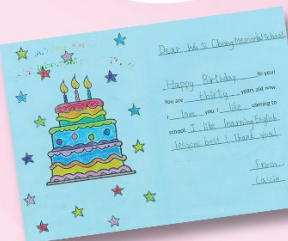 Dear Wu's Chong Memorial School
Happy Birthday to you!
You are thirty years old now.
I love you. I like coming to
school. I like learning English
lesson best! Thank you!
From
Cassie